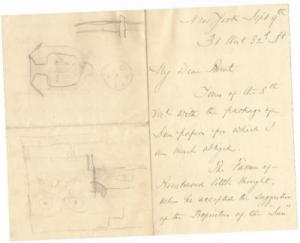 New York Sept 9th
31 West 32d St
My Dear
Yours of the 8th
with the package of
papers for which I
am much obliged.
The Farmer of
little thought,
when he accepted the suggestion
of the Proprietor of the "Sun"